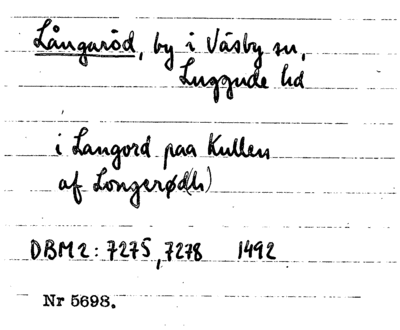 Långaröd, by i Väsby sn,
Luggude hd
i Langord paa Kullen
af Longerød(h)
DBM 2: 7275, 7278 1492
Nr 5698.